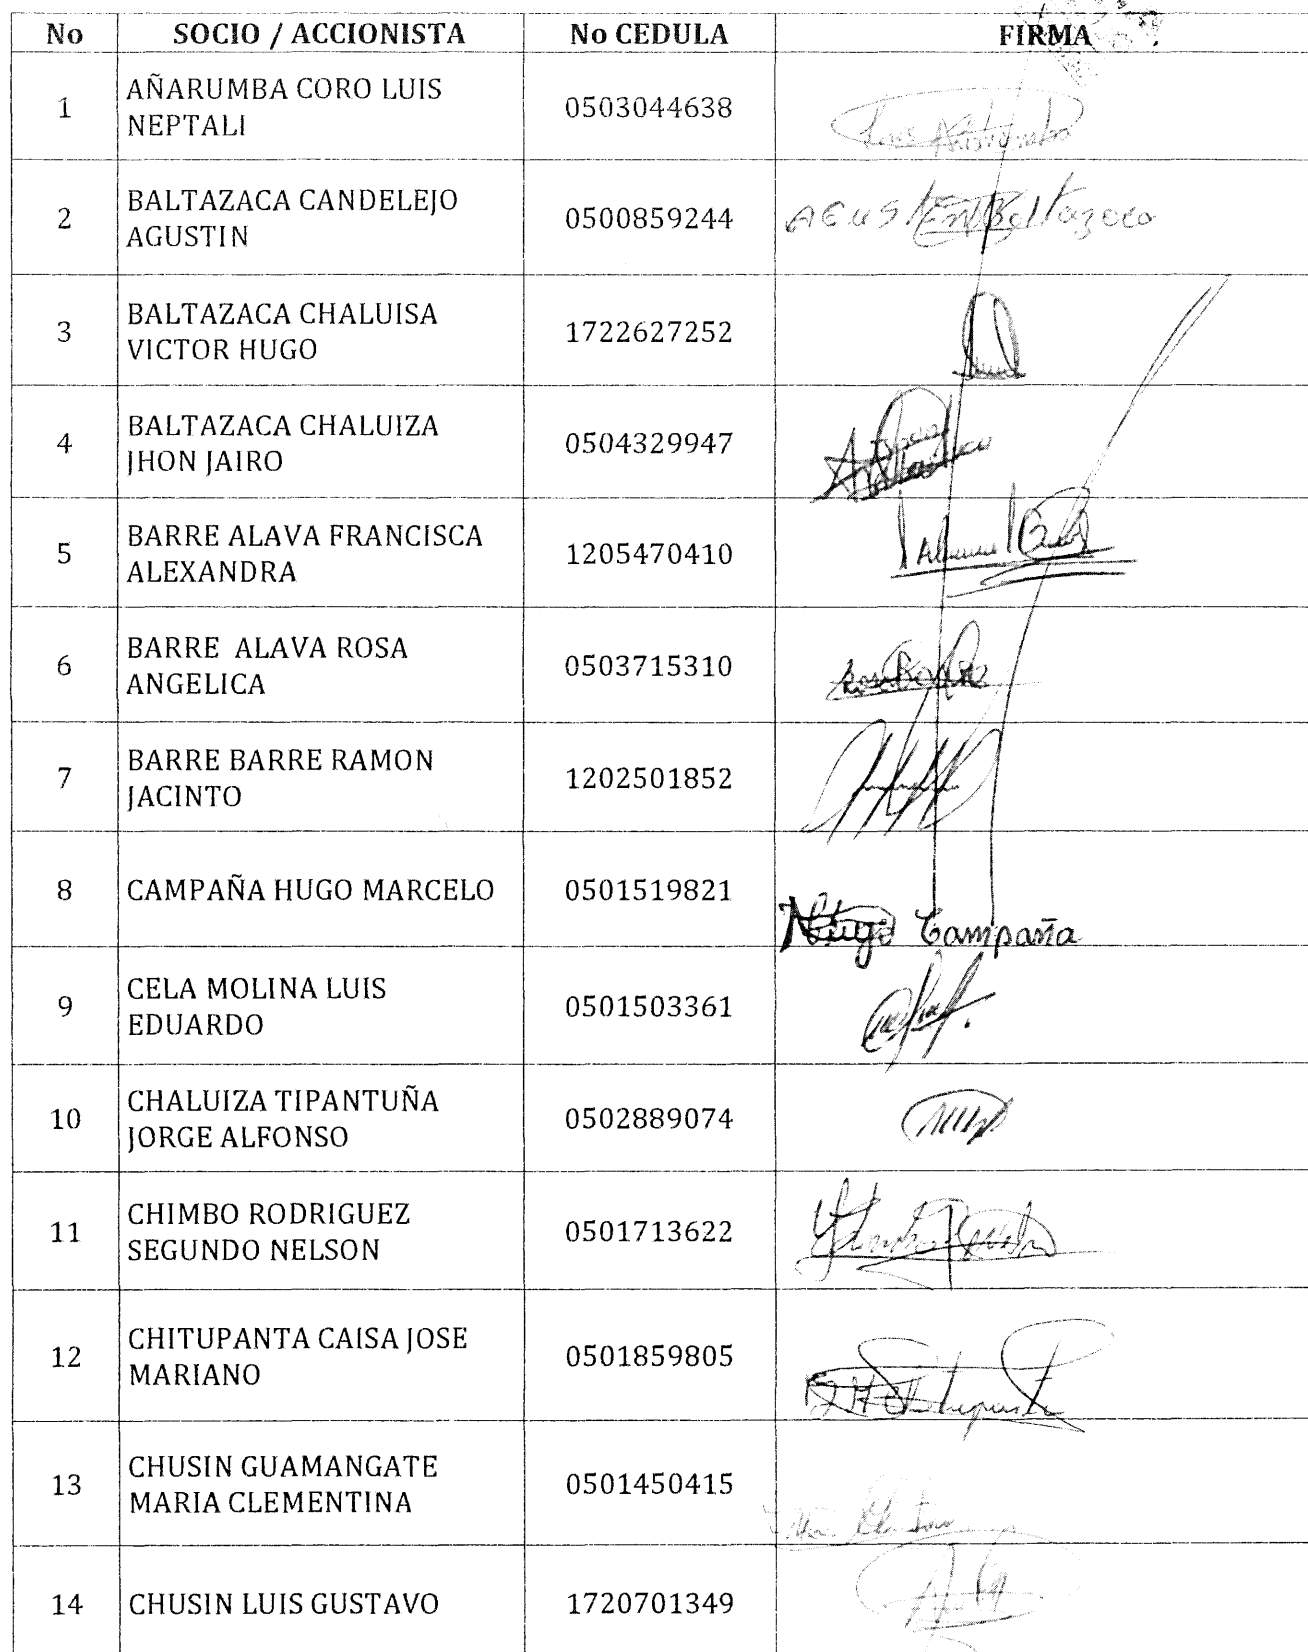 No SOCIO / ACCIONISTA No CEDULA FIRMA
1 AÑARUMBA CORO LUIS NEPTALI 0503044638
2 BALTAZACA CANDELEJO AGUSTIN 0500859244
3 BALTAZACA CHALUISA VICTOR HUGO 1722627252
4 BALTAZACA CHALUIZA JHON JAIRO 0504329947
5 BARRE ALAVA FRANCISCA ALEXANDRA 1205470410
6 BARRE ALAVA ROSA ANGELICA 0503715310
7 BARRE BARRE RAMON JACINTO 1202501852
8 CAMPAÑA HUGO MARCELO 0501519821 Hugo Campaña
9 CELA MOLINA LUIS EDUARDO 0501503361
10 CHALUIZA TIPANTUÑA JORGE ALFONSO 0502889074
11 CHIMBO RODRIGUEZ SEGUNDO NELSON 0501713622
12 CHITUPANTA CAISA JOSE MARIANO 0501859805
13 CHUSIN GUAMANGATE MARIA CLEMENTINA 0501450415
14 CHUSIN LUIS GUSTAVO 1720701349